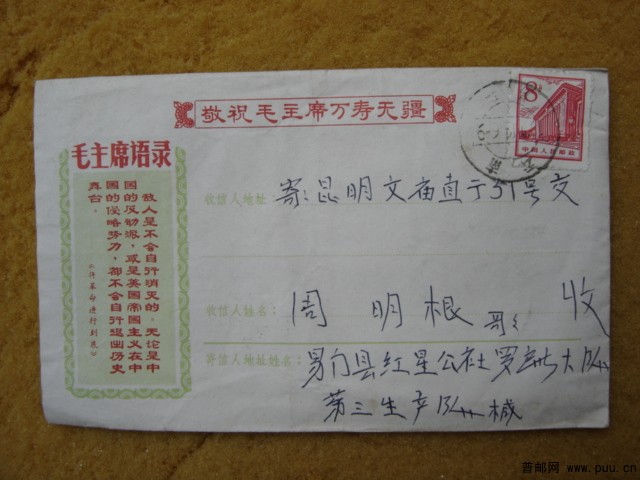 敬祝毛主席万寿无疆
8
中国人民邮政
毛主席语录
敌人是不会自行消灭的。无论是中
国的反动派，或是美国帝国主义在中
国的侵略势力，都不会自行退出历史
舞台。
《将革命进行到底》
收信人地址 寄：昆明文庙直于51号交
收信人姓名： 周明根 哥： 收
寄信人地址姓名： 易门县红星公社罗 大队
第三生产队 械
普邮网 www.puu.cn